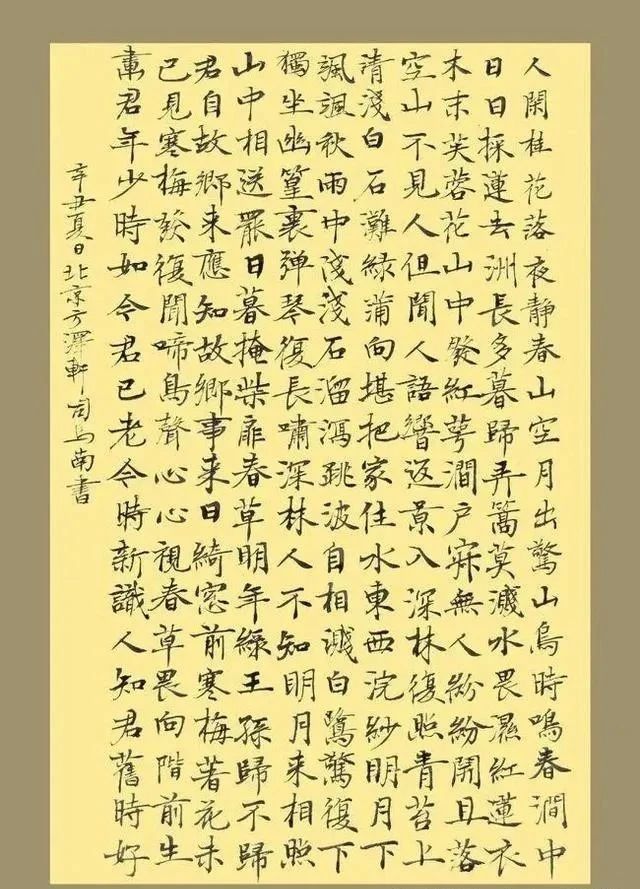 人閑桂花落夜静春山空月出驚山鳥時鳴春澗中
日日採蓮去洲長多暮歸弄篙莫濺水畏濕紅蓮衣
木末芙蓉花山中發紅萼澗户寂無人紛紛開且落
空山不見人但聞人語響返景入深林復照青苔上
清淺白石灘綠蒲向堪把家住水東西浣紗明月下
颯颯秋雨中淺淺石溜瀉跳波自相濺白鷺驚復下
獨坐幽篁裏弹琴復長嘯深林人不知明月来相照
山中相送罷日暮掩柴扉春草明年綠王孫歸不歸
君自故鄉来應知故鄉事来日綺窓前寒梅著花未
已見寒梅發復聞啼鳥聲心心視春草畏向階前生
畫君年少時如今君已老今時新識人知君舊時好
辛丑夏日北京方澤軒司馬南書